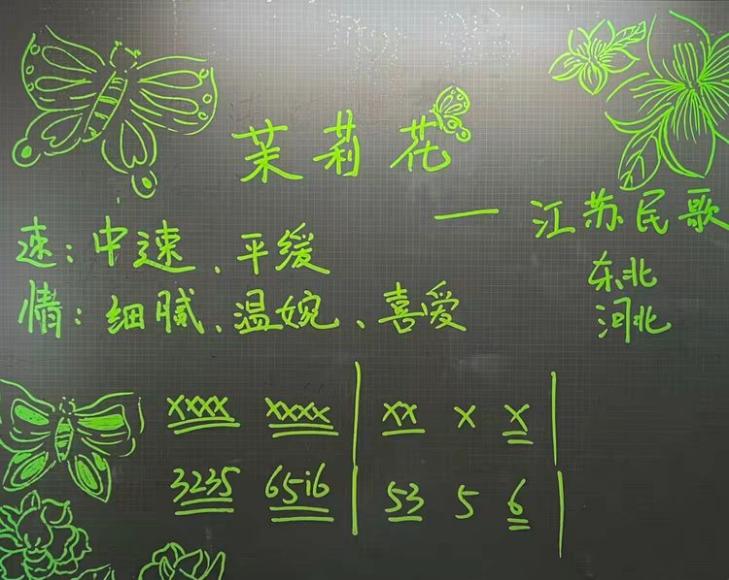 茉莉花
——江苏民歌
速:中速、平缓
东北
情:细腻、温婉、喜爱
河北
XXXX XXXX | XX X X |
3235 65i6 | 53 5 6 |